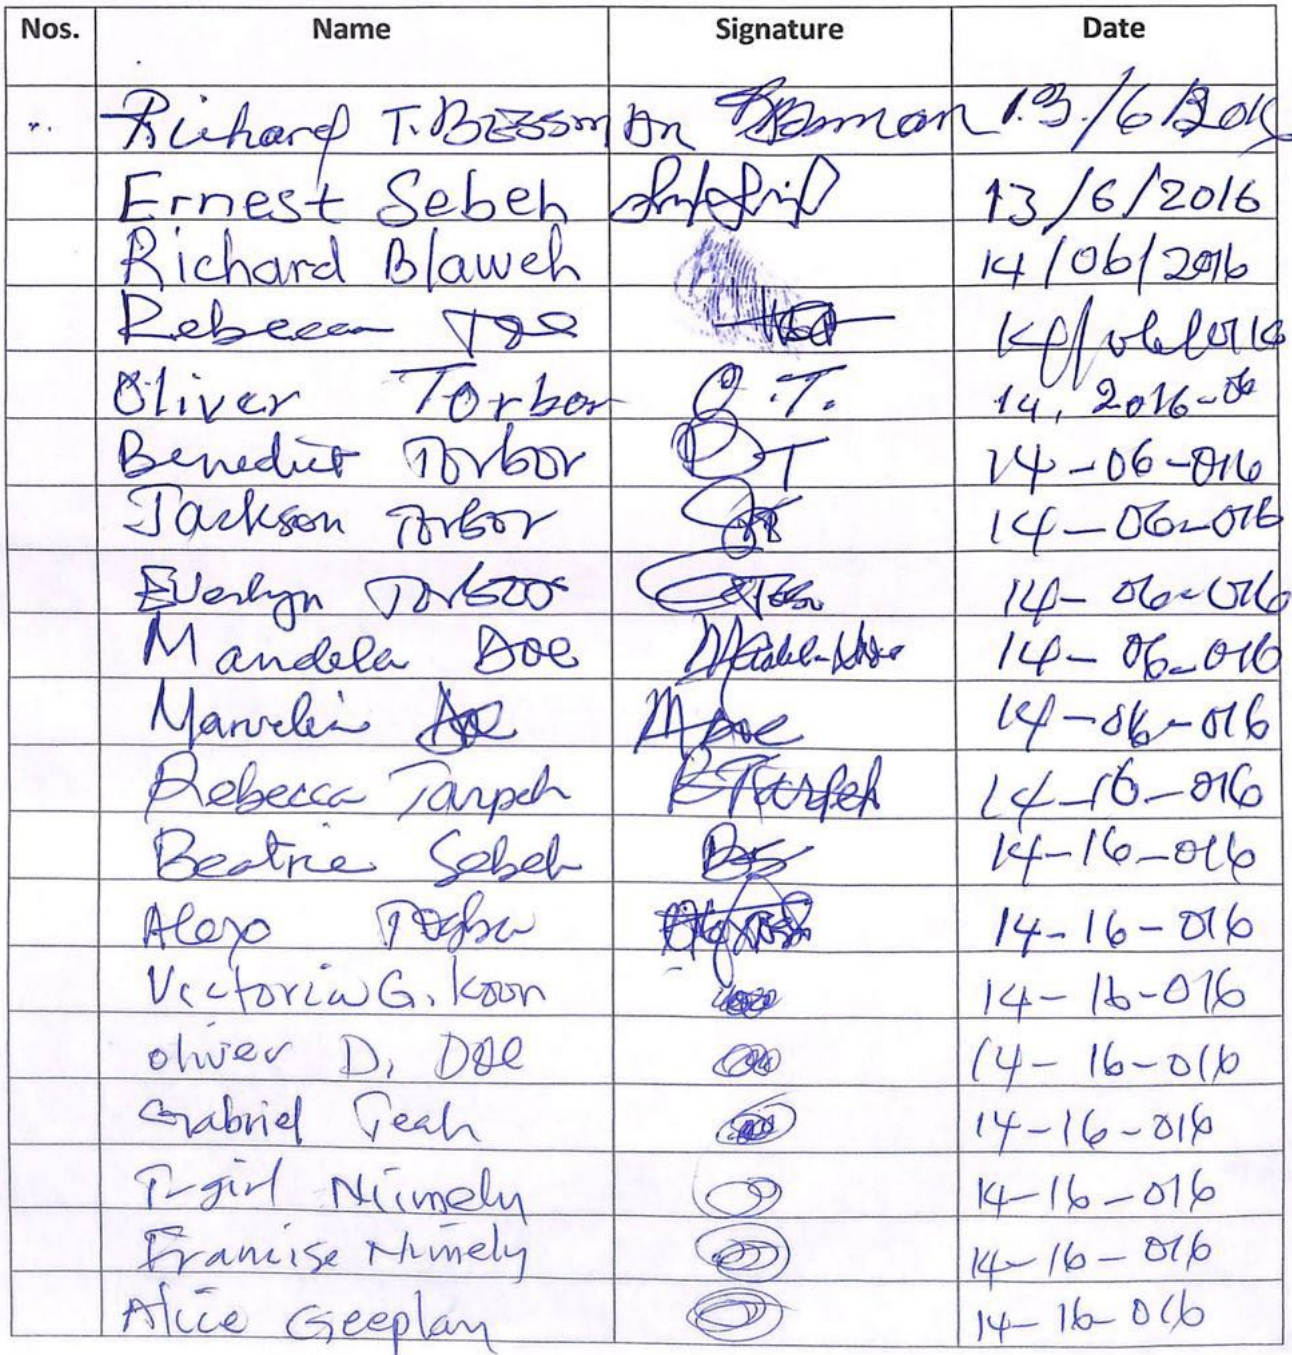 Nos. Name Signature Date
Richard T. 13/6/2016
Ernest Sebeh 13/6/2016
Richard Blaweh 14/06/2016
Rebecca
Oliver Torbor O.T. 14, 2016-06
Benedict Torbor BT 14-06-016
Jackson Torbor 14-06-016
Everlyn Torbor 14-06-016
Mandela Doe 14-06-016
Marvelin Doe M Doe 14-06-016
Rebecca Tarpeh R Tarpeh 14-16-016
Beatrice Sebeh BS 14-16-016
14-16-016
Victoria G. Koon 14-16-016
oliver D. Doe 14-16-016
Gabriel Teah 14-16-016
Nimely 14-16-016
Francise Nimely 14-16-016
Alice Geeplay 14-16-016